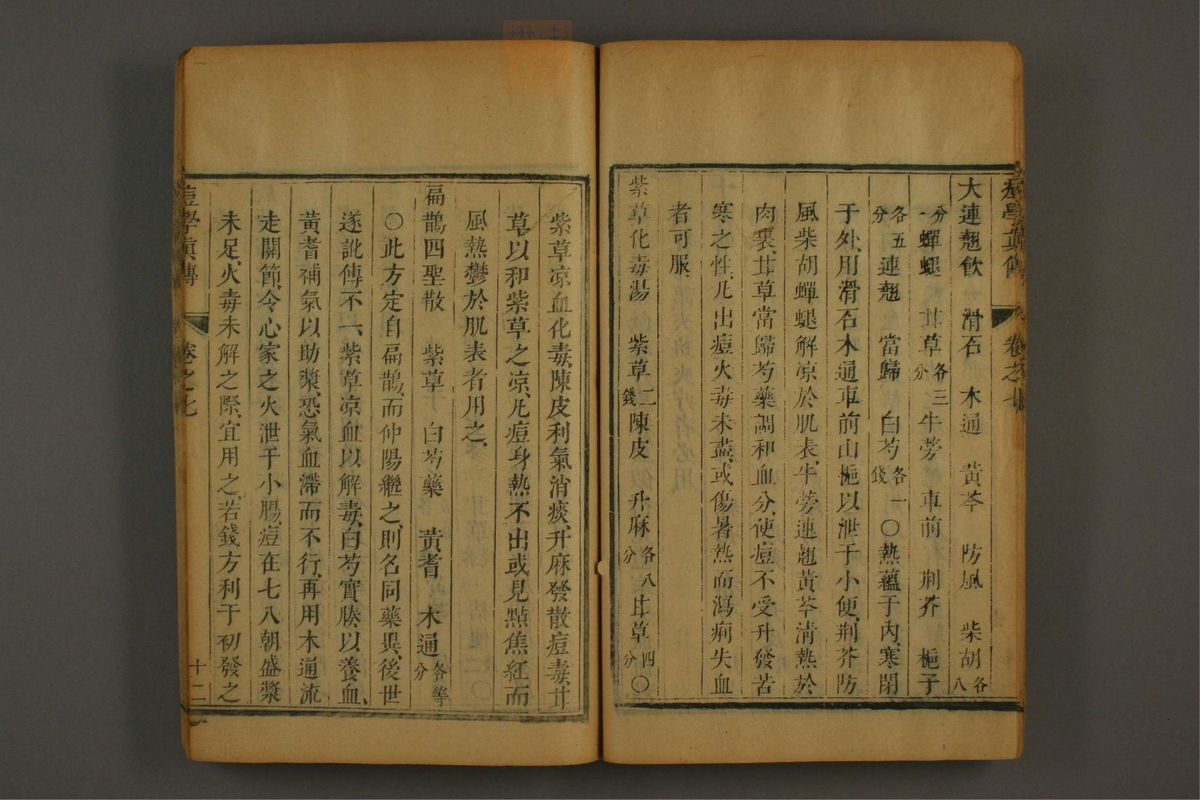 痘學眞傳 卷之七
大連翹飲 滑石 木通 黃芩 防風 柴胡各八
分蟬蛻 甘草各三分牛蒡 車前 荆芥 梔子
各五分 連翹 當歸 白芍各一錢 〇熱蘊于內、寒閉
于外、用滑石木通車前山梔以泄于小便、荆芥防
風柴胡蟬蛻解凉於肌表、牛蒡連翹黃芩清熱於
肉裏、甘草當歸芍藥調和血分、使痘不受升發苦
寒之性、凡出痘火毒未盡、或傷暑熱而瀉痢失血
者可服、
紫草化毒湯 紫草二錢陳皮 升麻各八分甘草四分〇
紫草凉血化毒、陳皮利氣消痰、升麻發散痘毒、甘
草以和紫草之凉、凡痘身熱不出或見點焦紅而
風熱鬱於肌表者用之、
扁鵲四聖散 紫草 白芍藥 黃耆 木通各等分
〇此方定自扁鵲、而仲陽繼之、則名同藥異、後世
遂訛傳不一、紫草凉血以解毒、白芍實腠以養血、
黃耆補氣以助漿、恐氣血滯而不行、再用木通流
走關節、令心家之火泄于小腸、痘在七八朝盛漿
未足、火毒未解之際、宜用之、若錢方利于初發之
痘學眞傳 卷之七 十二